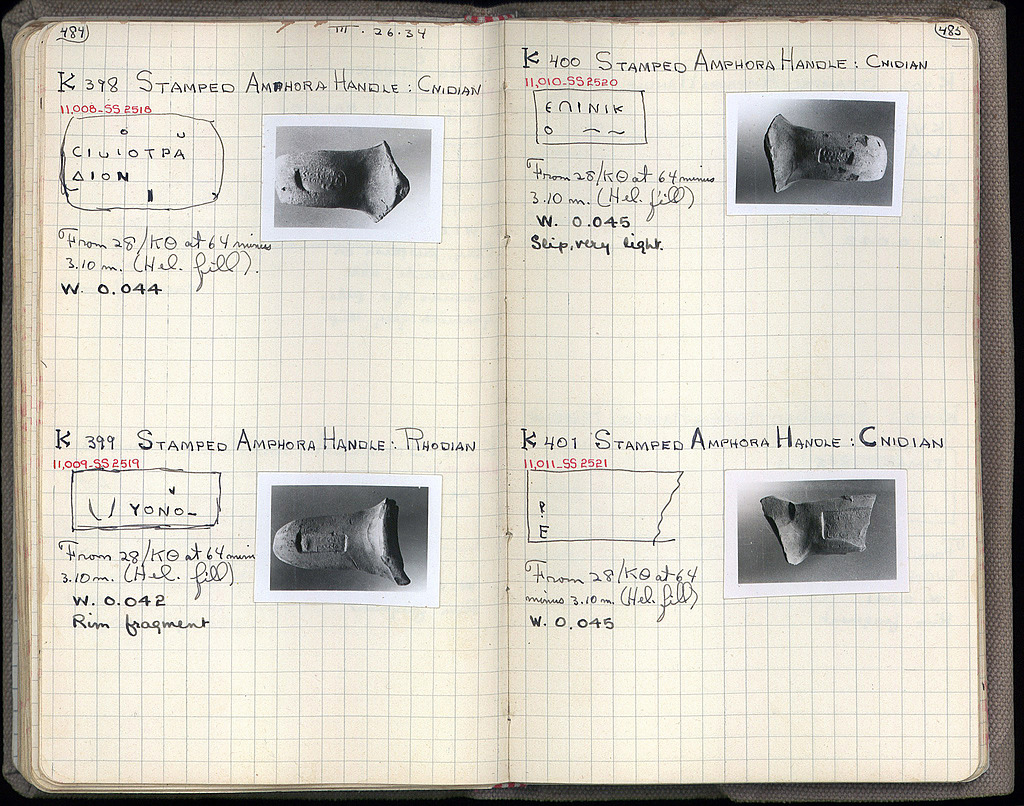 484
III. 26.34
K 398 STAMPED AMPHORA HANDLE: CNIDIAN
11,008-SS 2518
ΤΡΑ
ΔΙΟΝ
From 28/ΚΘ at 64 minus
3.10 m. (Hel. fill).
W. 0.044
K 399 STAMPED AMPHORA HANDLE: RHODIAN
11,009-SS 2519
ΥΟΝΟ
From 28/ΚΘ at 64 minus
3.10 m. (Hel. fill)
W. 0.042
Rim fragment
485
K 400 STAMPED AMPHORA HANDLE: CNIDIAN
11,010-SS 2520
ЄΠΙΝΙΚ
Ο
From 28/ΚΘ at 64 minus
3.10 m. (Hel. fill)
W. 0.045
Slip, very light.
K 401 STAMPED AMPHORA HANDLE: CNIDIAN
11,011-SS 2521
Ρ
Ε
From 28/ΚΘ at 64
minus 3.10 m. (Hel. fill)
W. 0.045